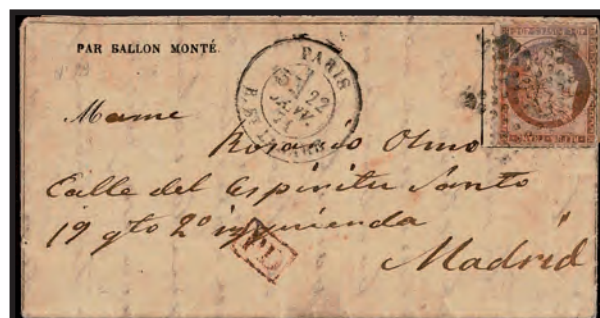 PAR BALLON MONTÉ.
PARIS
22
JANV.
71
Mame
Rosario Olmo
Calle del Espiritu Santo
19 qto 2º izquierda
PD
Madrid